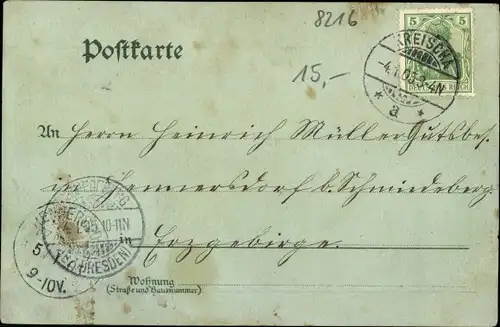 8216
Postkarte
15,-
5 5
KREISCHA
-4.1.05.3-4N
* a *
DEUTSCHES REICH
An Herrn Heinrich Müller Gutsbes.
Hennersdorf b. Schmiedeberg
in Erzgebirge.
10-11N
(BZ. DRESDEN)
5
9-10V.
Wohnung
(Straße und Hausnummer)